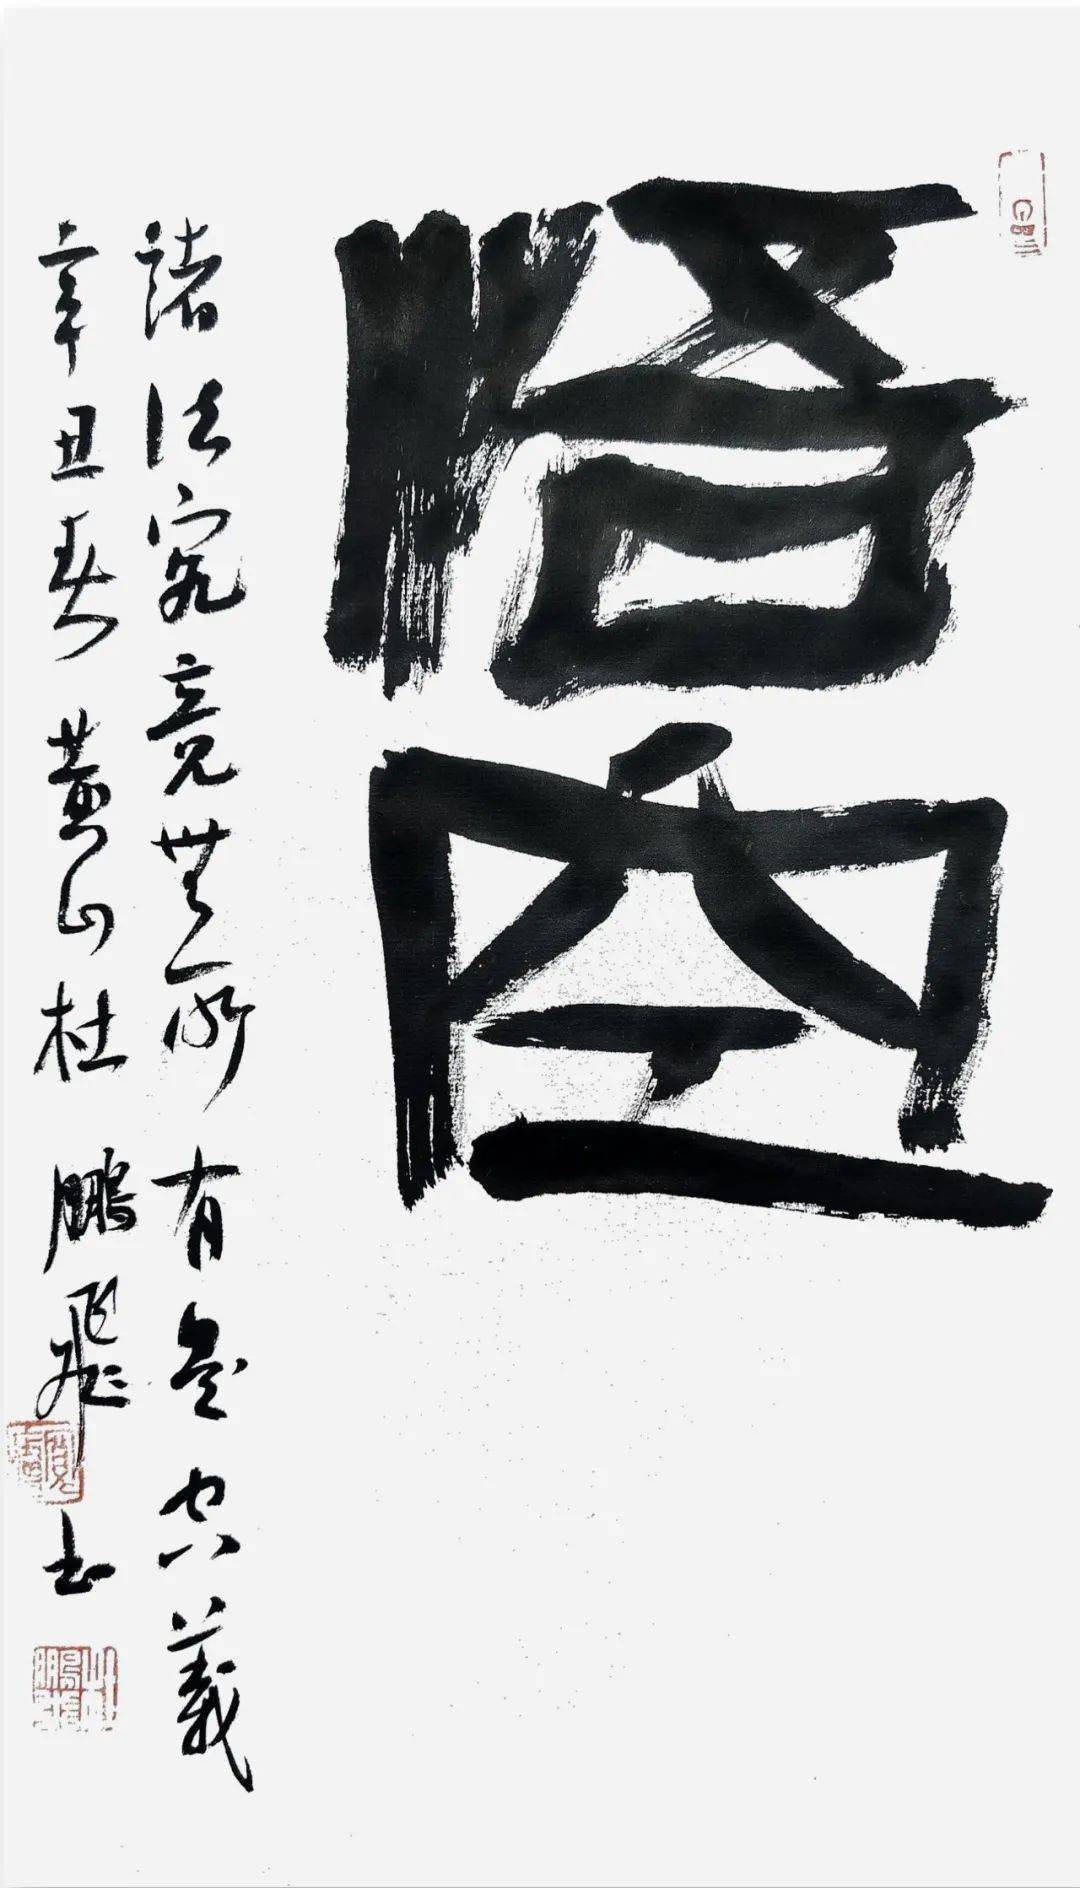 悟空
諸法究竟無所有是空義
辛丑春黄山杜鹏飛书